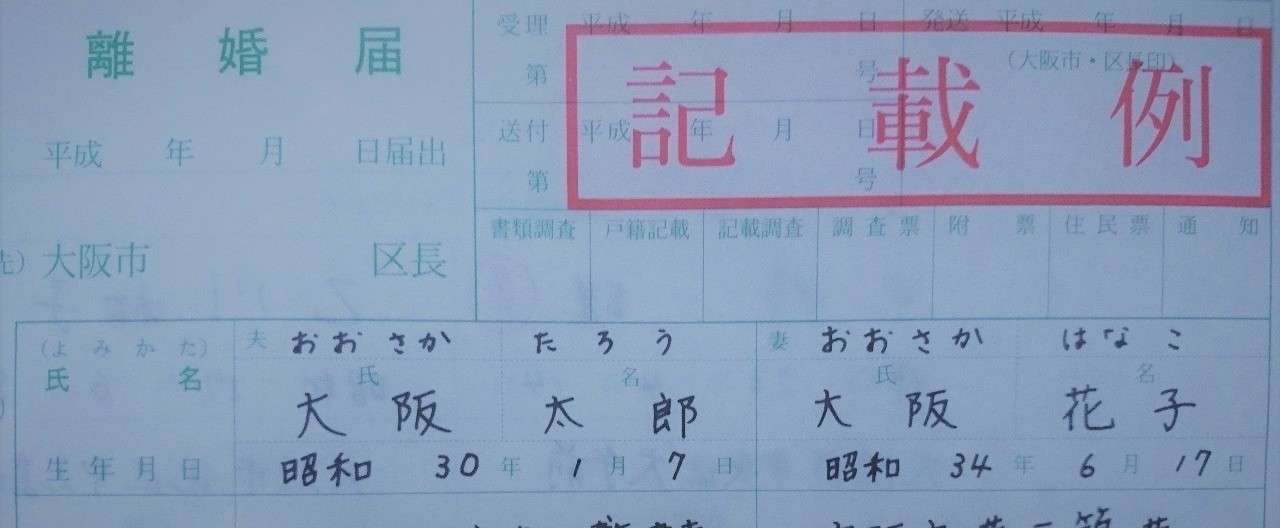 離婚届
平成 年 月 日届出
大阪市 区長
受理 平成 年 月 日 発送 平成 年 月 日
第 号 (大阪市・区長印)
送付 平成 年 月 日
第 号
記載例
書類調査 戸籍記載 記載調査 調査票 附票 住民票 通知
(よみかた) 夫 おおさか たろう 妻 おおさか はなこ
氏名 氏 名 氏 名
大阪 太郎 大阪 花子
生年月日 昭和 30 年 1 月 7 日 昭和 34 年 6 月 17 日